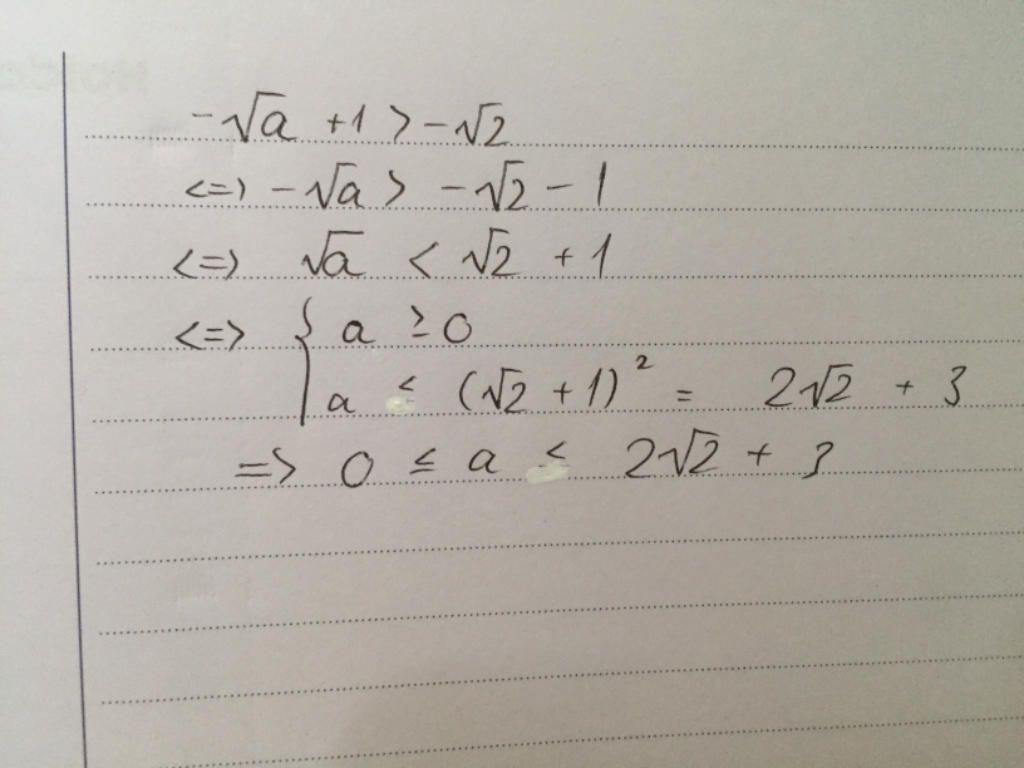 -√a +1 > -√2
<=> -√a > -√2 - 1
<=> √a < √2 + 1
<=> { a ≥ 0
a < (√2 + 1)² = 2√2 + 3
=> 0 ≤ a < 2√2 + 3